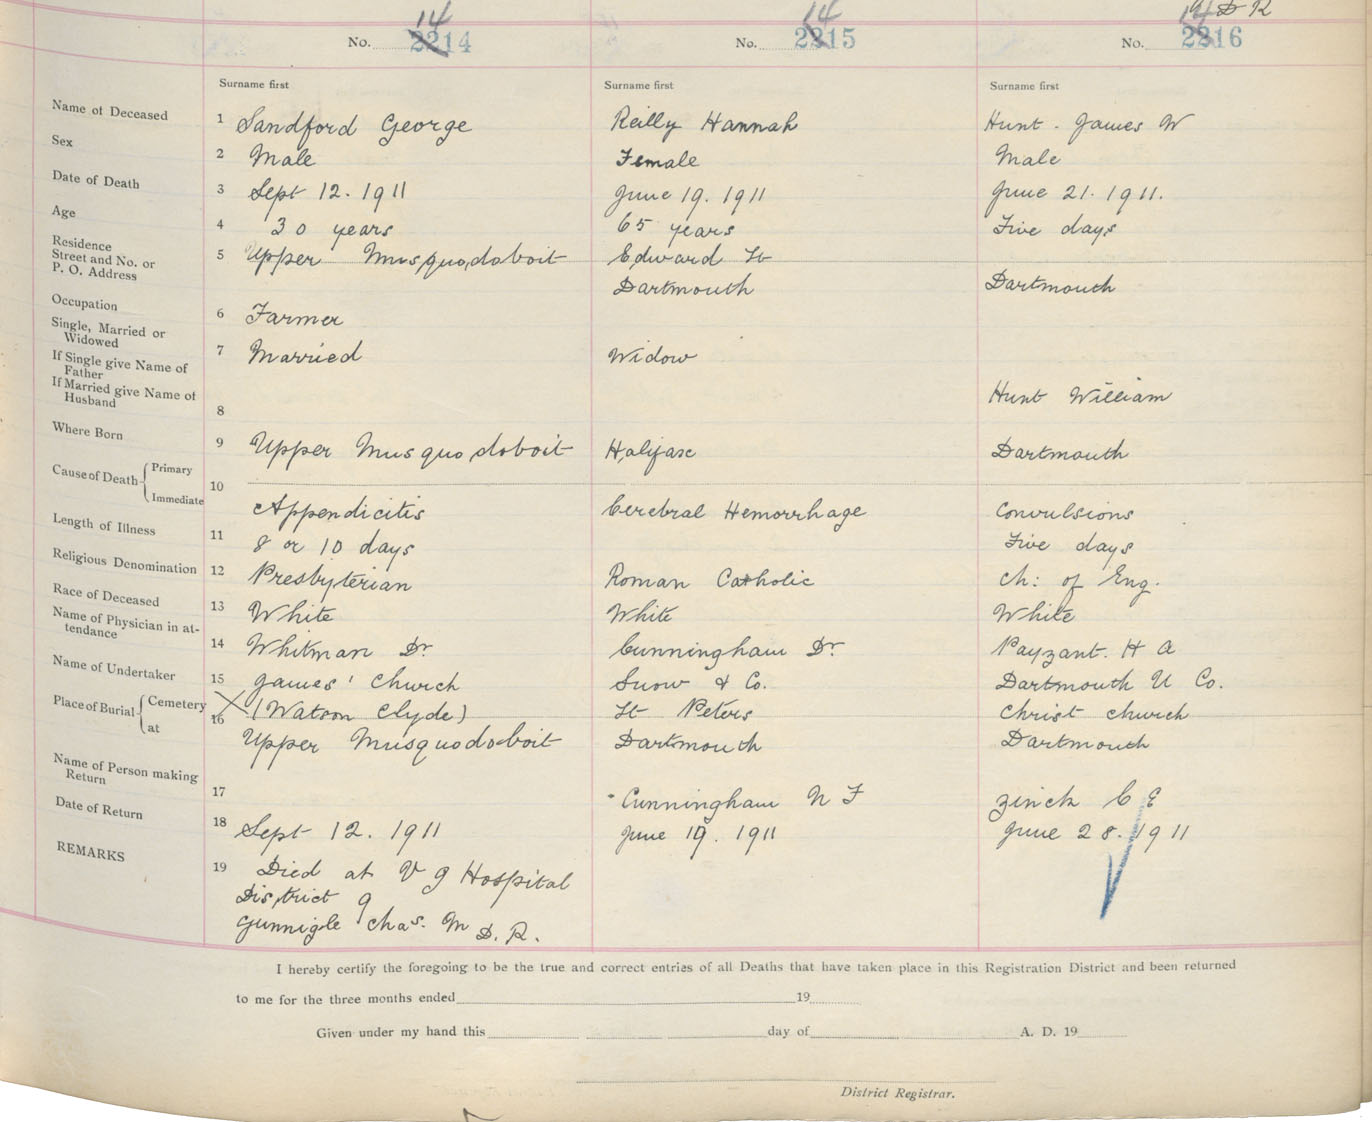 14 14 14 D R
No. 2214 No. 2215 No. 2216
Surname first Surname first Surname first
Name of Deceased 1 Sandford George Reilly Hannah Hunt. James W
Sex 2 Male Female Male
Date of Death 3 Sept 12. 1911 June 19. 1911 June 21. 1911.
Age 4 30 years 65 years Five days
Residence
Street and No. or 5 Upper Musquodoboit Edward St
P. O. Address Dartmouth Dartmouth
Occupation 6 Farmer
Single, Married or
Widowed 7 Married Widow
If Single give Name of
Father
If Married give Name of Hunt William
Husband 8
Where Born 9 Upper Musquodoboit Halifax Dartmouth
Cause of Death Primary
10
Immediate Appendicitis Cerebral Hemorrhage Convulsions
Length of Illness 11 8 or 10 days Five days
Religious Denomination 12 Presbyterian Roman Catholic Ch: of Eng.
Race of Deceased 13 White White White
Name of Physician in at-
tendance 14 Whitman Dr. Cunningham Dr. Payzant. H A
Name of Undertaker 15 James' Church Snow & Co. Dartmouth U Co.
Place of Burial Cemetery 16 X (Watson Clyde) St Peters Christ Church
at Upper Musquodoboit Dartmouth Dartmouth
Name of Person making
Return 17 Cunningham N F Zinck C E
Date of Return 18 Sept 12. 1911 June 19. 1911 June 28. 1911
REMARKS 19 Died at V G Hospital
District 9
Gunnigle Chas. M D. R.
I hereby certify the foregoing to be the true and correct entries of all Deaths that have taken place in this Registration District and been returned
to me for the three months ended 19
Given under my hand this day of A. D. 19
District Registrar.